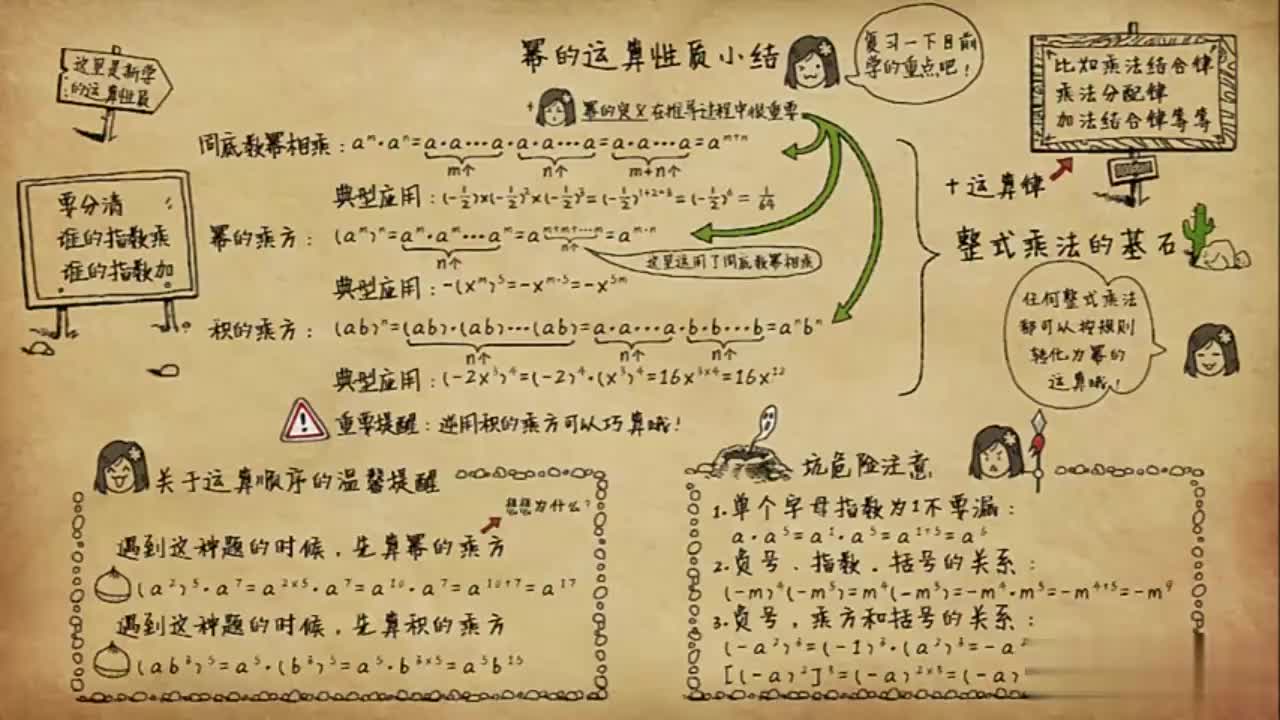 幂的运算性质小结
复习一下目前
学的重点吧！
这里是新学
的运算性质
+ 幂的定义在推导过程中很重要
比如乘法结合律
乘法分配律
加法结合律等等
同底数幂相乘：aᵐ·aⁿ=a·a…a·a·a…a=a·a…a=aᵐ⁺ⁿ
m个 n个 m+n个
典型应用：(-1/2)×(-1/2)²×(-1/2)³=(-1/2)¹⁺²⁺³=(-1/2)⁶=1/64
+运算律
要分清
谁的指数乘
谁的指数加
幂的乘方：(aᵐ)ⁿ=aᵐ·aᵐ…aᵐ=aᵐ⁺ᵐ⁺…ᵐ=aᵐ·ⁿ
n个 n个
这里运用了同底数幂相乘
整式乘法的基石
典型应用：-(xᵐ)⁵=-xᵐ·⁵=-x⁵ᵐ
积的乘方：(ab)ⁿ=(ab)·(ab)…(ab)=a·a…a·b·b…b=aⁿbⁿ
n个 n个 n个
典型应用：(-2x³)⁴=(-2)⁴·(x³)⁴=16x³ˣ⁴=16x¹²
任何整式乘法
都可以按规则
转化为幂的
运算哦！
重要提醒：逆用积的乘方可以巧算哦！
关于运算顺序的温馨提醒
想想为什么？
遇到这种题的时候，先算幂的乘方
(a²)⁵·a⁷=a²ˣ⁵·a⁷=a¹⁰·a⁷=a¹⁰⁺⁷=a¹⁷
遇到这种题的时候，先算积的乘方
(ab³)⁵=a⁵·(b³)⁵=a⁵·b³ˣ⁵=a⁵b¹⁵
坑危险注意
1.单个字母指数为1不要漏：
a·a⁵=a¹·a⁵=a¹⁺⁵=a⁶
2.负号、指数、括号的关系：
(-m)⁴(-m⁵)=m⁴(-m⁵)=-m⁴·m⁵=-m⁴⁺⁵=-m⁹
3.负号，乘方和括号的关系：
(-a²)³=(-1)³·(a²)³=-a²
[(-a)²]³=(-a)²ˣ³=(-a)